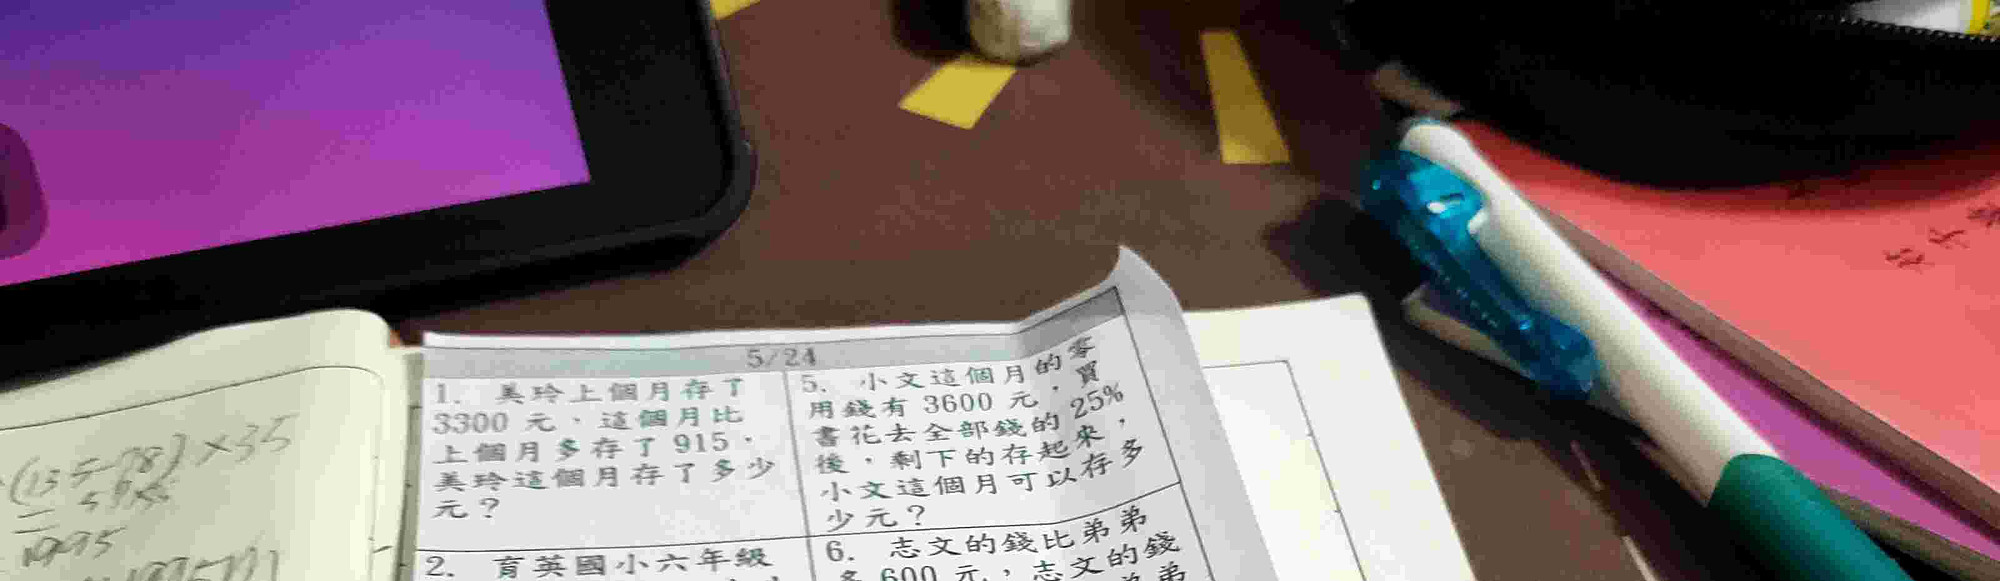 5/24
1. 美玲上個月存了
3300 元，這個月比
上個月多存了 915，
美玲這個月存了多少
元？
2. 育英國小六年級
5. 小文這個月的零
用錢有 3600 元，買
書花去全部錢的 25%
後，剩下的存起來，
小文這個月可以存多
少元？
6. 志文的錢比弟弟
多 600 元，志文的錢
(135-78)×35
1995